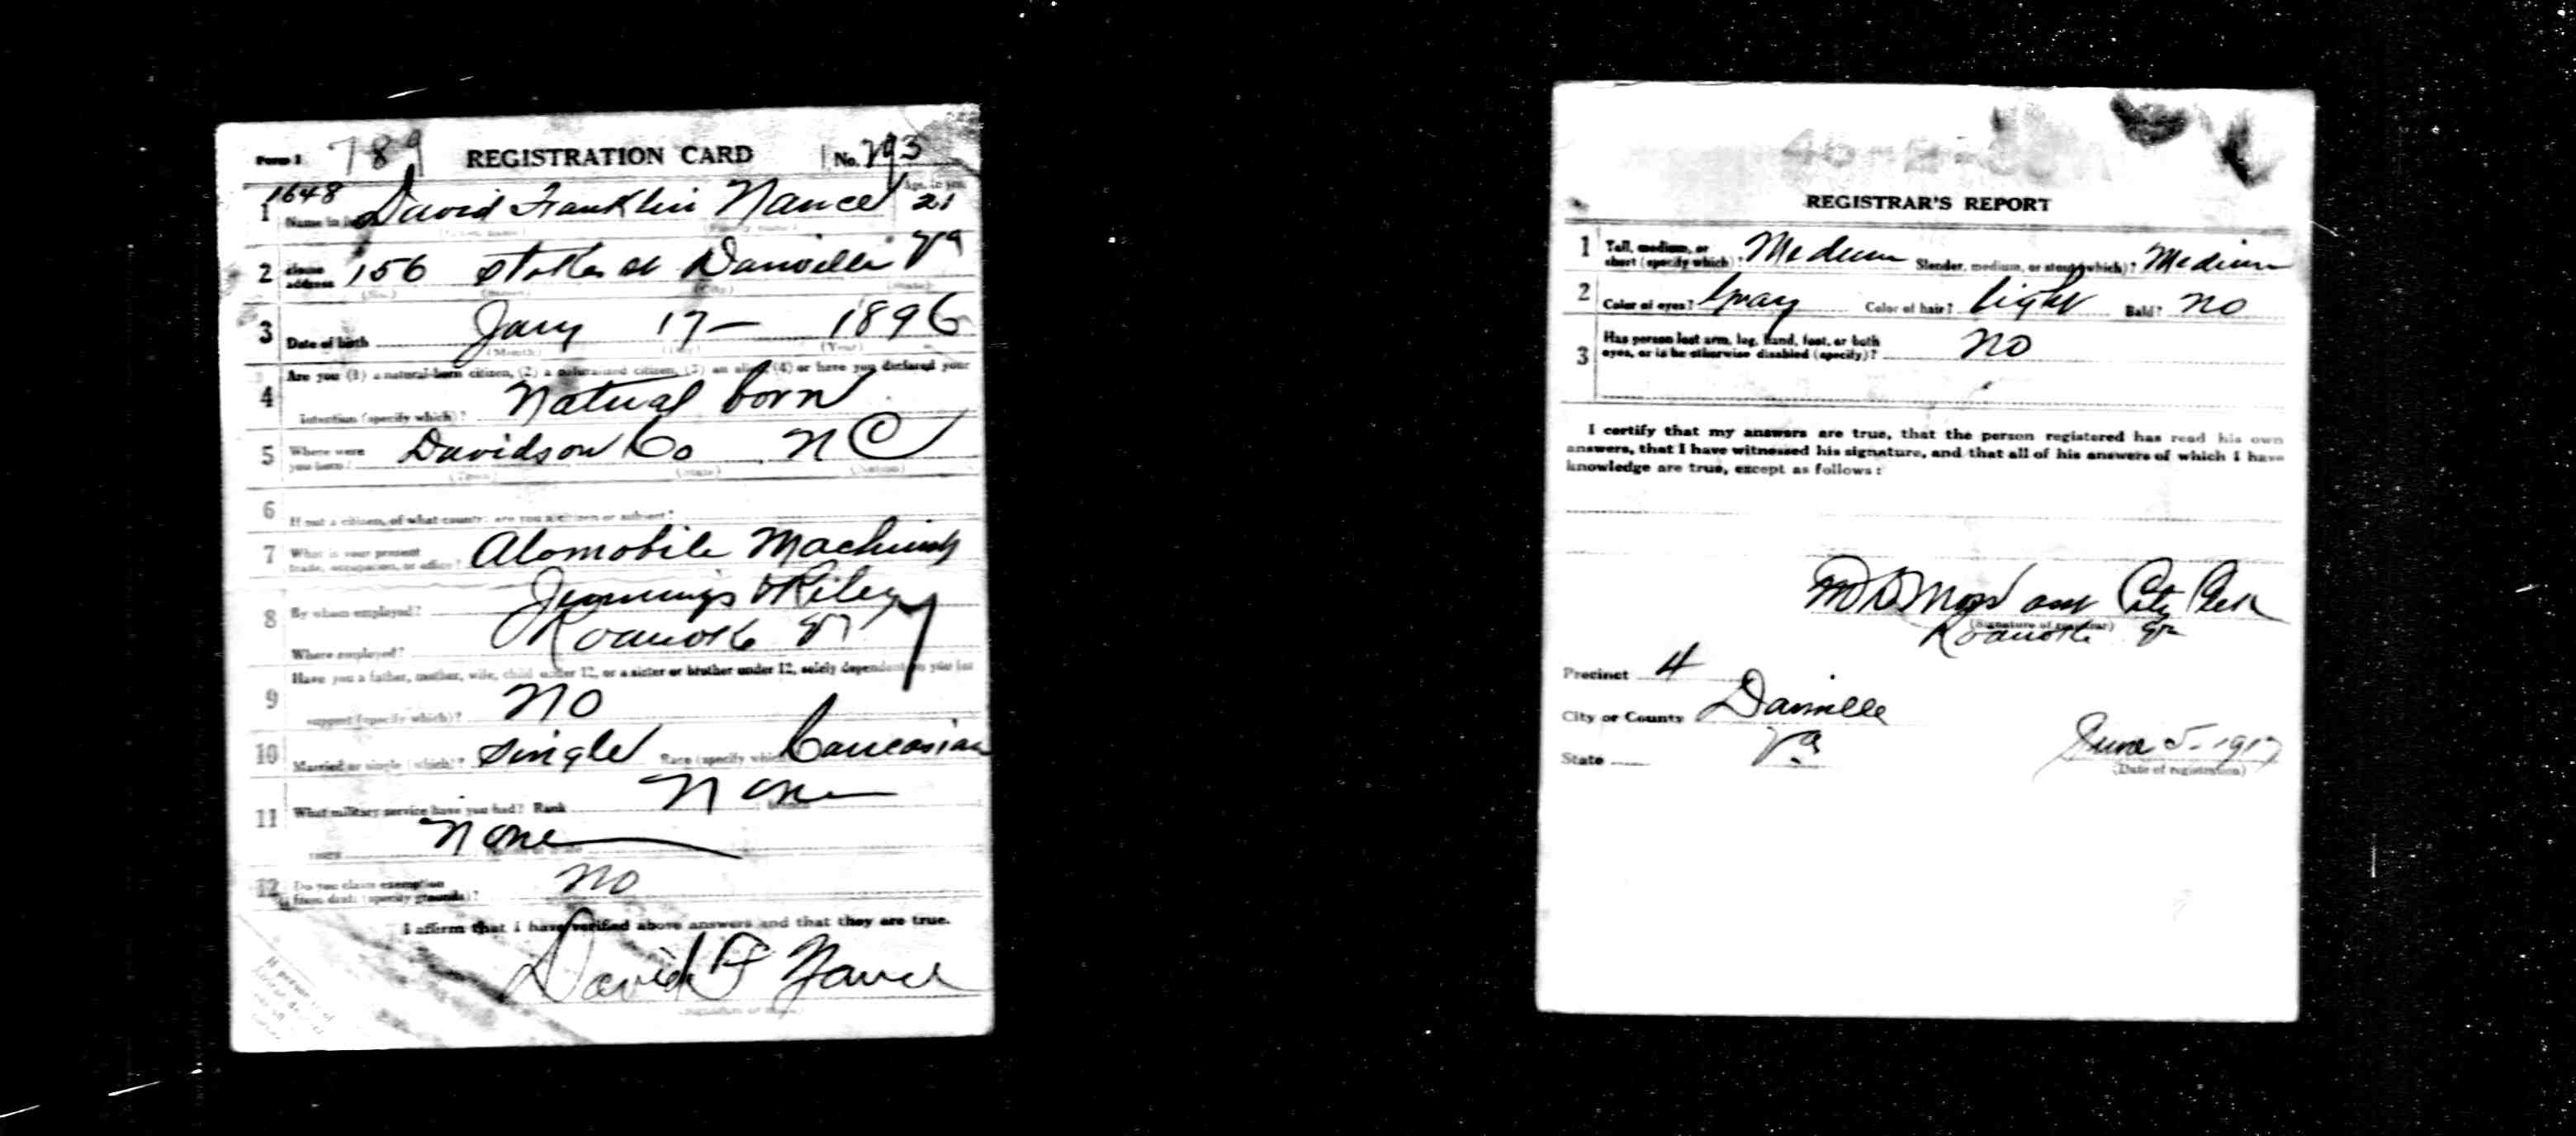 Form 1 789 REGISTRATION CARD No. 293
1648
1 Name in full David Franklin Nance Age, in yrs. 21
(Given name) (Family name)
2 Home address 156 Stokes st Danville Va
(No.) (Street) (City) (State)
3 Date of birth Jany 17 - 1896
(Month) (Day) (Year)
4 Are you (1) a natural-born citizen, (2) a naturalized citizen, (3) an alien, (4) or have you declared your
intention (specify which)? Natural born
5 Where were you born? Davidson Co NC
(Town) (State) (Nation)
6 If not a citizen, of what country are you a citizen or subject?
7 What is your present trade, occupation, or office? Atomobile Machinist
8 By whom employed? Jennings & Riley
Where employed? Roanoke Va
9 Have you a father, mother, wife, child under 12, or a sister or brother under 12, solely dependent on you for
support (specify which)? No
10 Married or single (which)? Single Race (specify which)? Caucasian
11 What military service have you had? Rank None branch
years None
12 Do you claim exemption from draft (specify grounds)? No
I affirm that I have verified above answers and that they are true.
David F Nance
(Signature or mark)
REGISTRAR'S REPORT
1 Tall, medium, or short (specify which)? Medium Slender, medium, or stout (which)? Medium
2 Color of eyes? Gray Color of hair? light Bald? no
3 Has person lost arm, leg, hand, foot, or both
eyes, or is he otherwise disabled (specify)? no
I certify that my answers are true, that the person registered has read his own
answers, that I have witnessed his signature, and that all of his answers of which I have
knowledge are true, except as follows:
City Clerk
(Signature of registrar)
Roanoke Va
Precinct 4
City or County Danville
State Va
June 5 - 1917
(Date of registration)